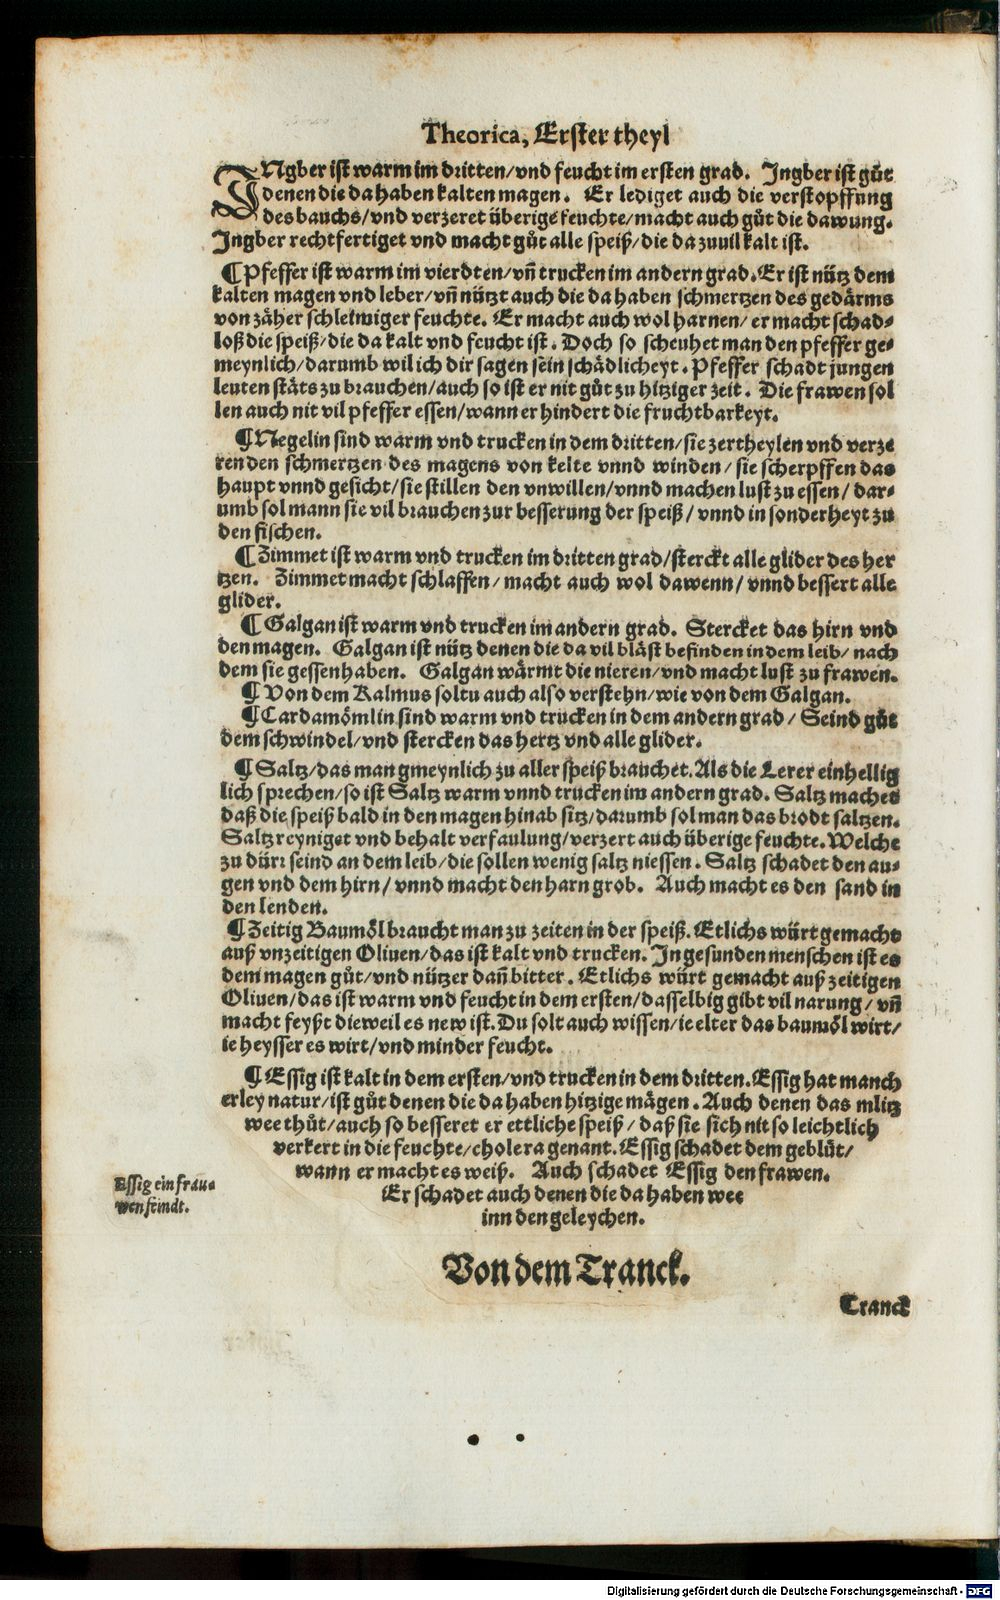 Theorica, Erster theyl
INgber ist warm im dritten/vnd feucht im ersten grad. Ingber ist gůt
denen die da haben kalten magen. Er lediget auch die verstopffung
des bauchs/vnd verzeret überige feuchte/macht auch gůt die dawung.
Ingber rechtfertiget vnd macht gůt alle speiß/die da zuuil kalt ist.
¶ Pfeffer ist warm im vierdten/vñ trucken im andern grad. Er ist nütz dem
kalten magen vnd leber/vñ nützt auch die da haben schmertzen des gedärms
von zäher schleimiger feuchte. Er macht auch wol harnen/er macht schad⸗
loß die speiß/die da kalt vnd feucht ist. Doch so scheuhet man den pfeffer ge⸗
meynlich/darumb wil ich dir sagen sein schädlicheyt. Pfeffer schadt jungen
leuten stäts zu brauchen/auch so ist er nit gůt zu hitziger zeit. Die frawen sol
len auch nit vil pfeffer essen/wann er hindert die fruchtbarkeyt.
¶ Negelin sind warm vnd trucken in dem dritten/sie zertheylen vnd verze
ren den schmertzen des magens von kelte vnnd winden/sie scherpffen das
haupt vnnd gesicht/sie stillen den vnwillen/vnnd machen lust zu essen/dar⸗
umb sol mann sie vil brauchen zur besserung der speiß/vnnd in sonderheyt zu
den fischen.
¶ Zimmet ist warm vnd trucken im dritten grad/sterckt alle glider des her
tzen. Zimmet macht schlaffen/macht auch wol dawenn/vnnd bessert alle
glider.
¶ Galgan ist warm vnd trucken im andern grad. Stercket das hirn vnd
den magen. Galgan ist nütz denen die da vil bläst befinden in dem leib/nach
dem sie gessen haben. Galgan wärmt die nieren/vnd macht lust zu frawen.
¶ Von dem Kalmus soltu auch also verstehn/wie von dem Galgan.
¶ Cardamömlin sind warm vnd trucken in dem andern grad/Seind gůt
dem schwindel/vnd stercken das hertz vnd alle glider.
¶ Saltz/das man gmeynlich zu aller speiß brauchet. Als die Lerer einhellig
lich sprechen/so ist Saltz warm vnnd trucken im andern grad. Saltz machet
daß die speiß bald in den magen hinab sitz/darumb sol man das brodt saltzen.
Saltz reyniget vnd behalt verfaulung/verzert auch überige feuchte. Welche
zu dürr seind an dem leib/die sollen wenig saltz niessen. Saltz schadet den au⸗
gen vnd dem hirn/vnnd macht den harn grob. Auch macht es den sand in
den lenden.
¶ Zeitig Baumöl braucht man zu zeiten in der speiß. Etlichs würt gemacht
auß vnzeitigen Oliuen/das ist kalt vnd trucken. In gesunden menschen ist es
dem magen gůt/vnd nützer dañ bitter. Etlichs würt gemacht auß zeitigen
Oliuen/das ist warm vnd feucht in dem ersten/dasselbig gibt vil narung/vñ
macht feyßt dieweil es new ist. Du solt auch wissen/ie elter das baumöl wirt/
ie heysser es wirt/vnd minder feucht.
¶ Essig ist kalt in dem ersten/vnd trucken in dem dritten. Essig hat manch
erley natur/ist gůt denen die da haben hitzige mägen. Auch denen das miltz
wee thůt/auch so besseret er ettliche speiß/daß sie sich nit so leichtlich
verkert in die feuchte/cholera genant. Essig schadet dem geblüt/
wann er macht es weiß. Auch schadet Essig den frawen.
Er schadet auch denen die da haben wee
inn den geleychen.
Essig ein frau⸗
wen feindt.
Von dem Tranck.
Tranck
Digitalisierung gefördert durch die Deutsche Forschungsgemeinschaft - DFG